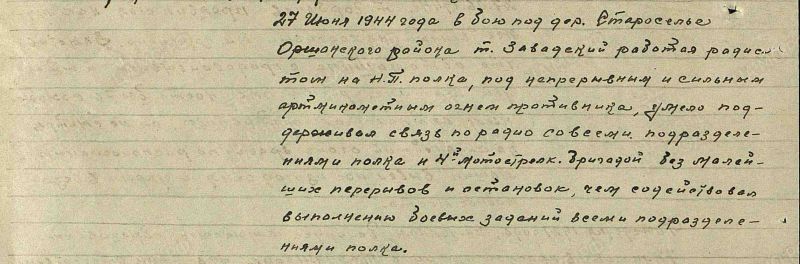 27 Июня 1944 года в бою под дер. Староселье
Оршанского района т. Завадский работая радис-
том на Н.П. полка, под непрерывным и сильным
артминометным огнем противника, умело под-
держивал связь по радио со всеми подразделе-
ниями полка и 4й мотострелк. бригадой без малей-
ших перерывов и остановок, чем содействовал
выполнению боевых заданий всеми подразделе-
ниями полка.